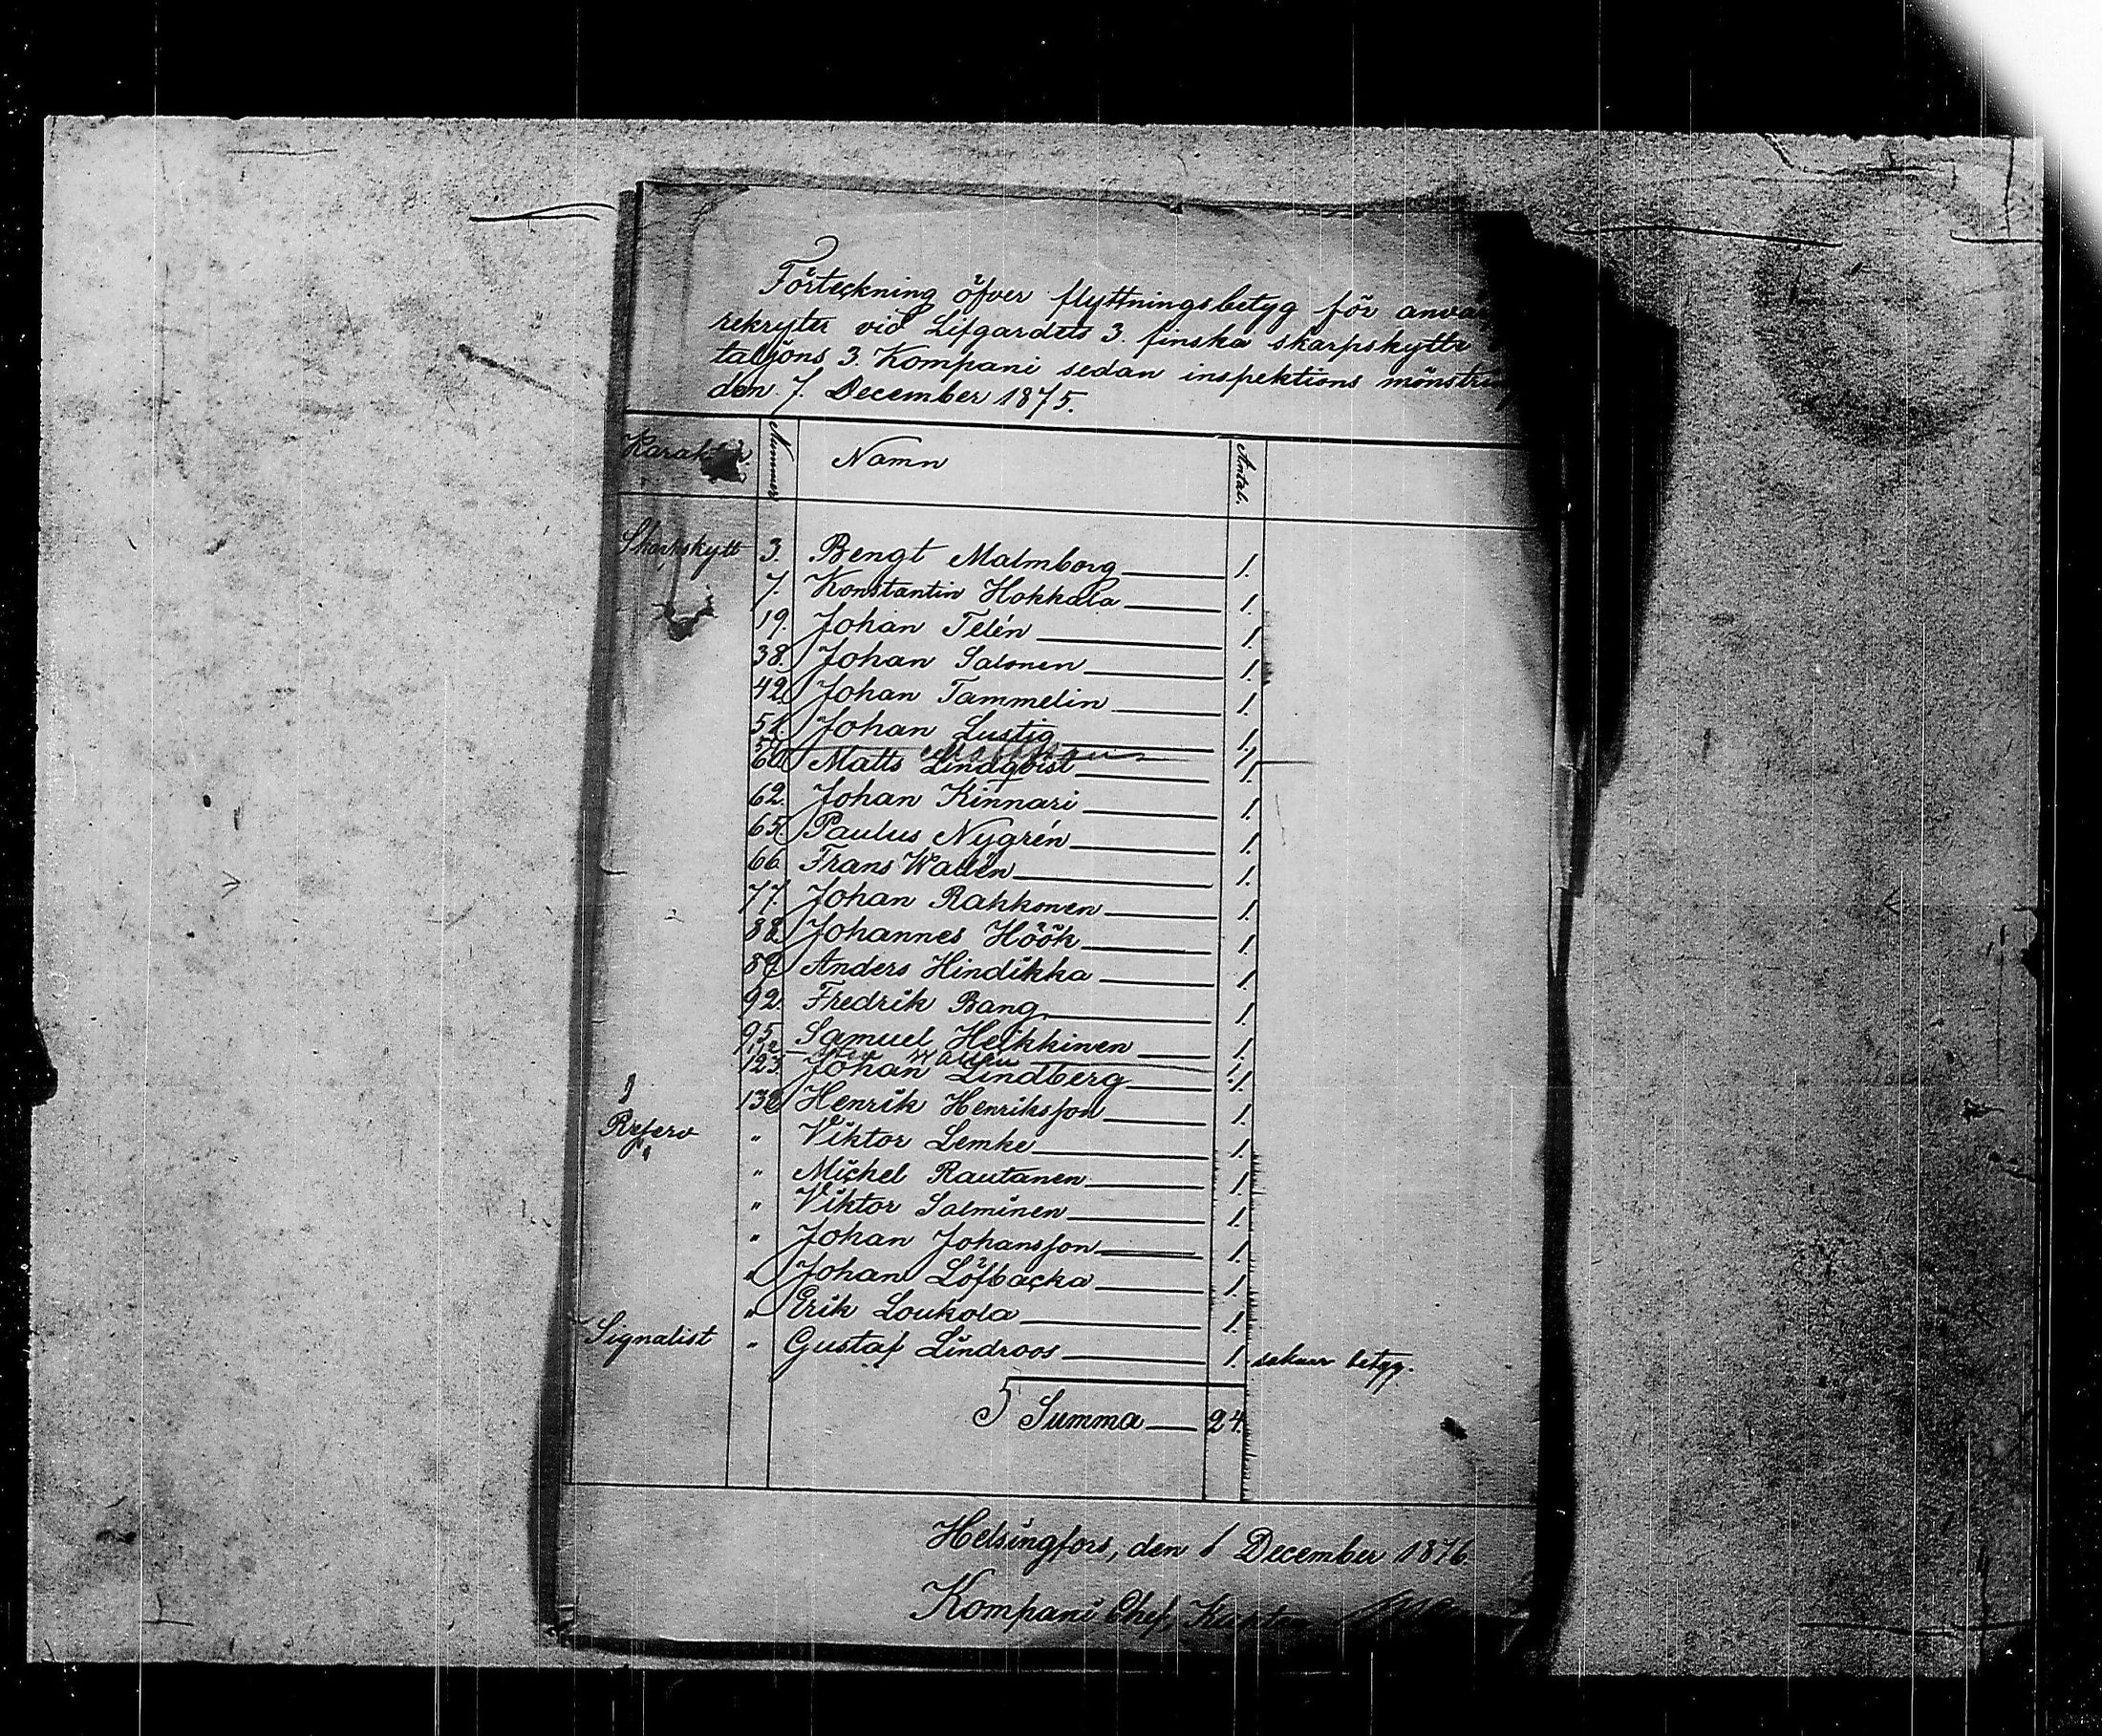 Förteckning öfver flyttningsbetyg för
rekryter vid Lifgardets 3. finska skarpskytte
taljons 3. Kompani sedan inspektions
den 7. December 1875.
Nummer Namn Antal.
Skarpskytt 3. Bengt Malmborg 1.
7. Konstantin Hokkala 1.
19. Johan Telén 1.
38. Johan Salonen 1.
42. Johan Tammelin 1.
51. Johan Lustig 1.
Matts Lindqvist 1.
62. Johan Kinnari 1.
65. Paulus Nygrén 1.
66. Frans Wallén 1.
77. Johan Rahkonen 1.
88. Johannes Höök 1.
89. Anders Hindikka 1.
92. Fredrik Bang 1.
95. Samuel Heikkinen 1.
123. Johan Lindberg 1.
Henrik Henriksson 1.
Reserv " Viktor Lemke 1.
" Michel Rautanen 1.
" Viktor Salminen 1.
" Johan Johansson 1.
" Johan Löfbacka 1.
" Erik Loukola 1.
Signalist " Gustaf Lindroos 1. saknar betyg.
Summa 24.
Helsingfors, den 1 December 1876
Kompani Chef, Kapten